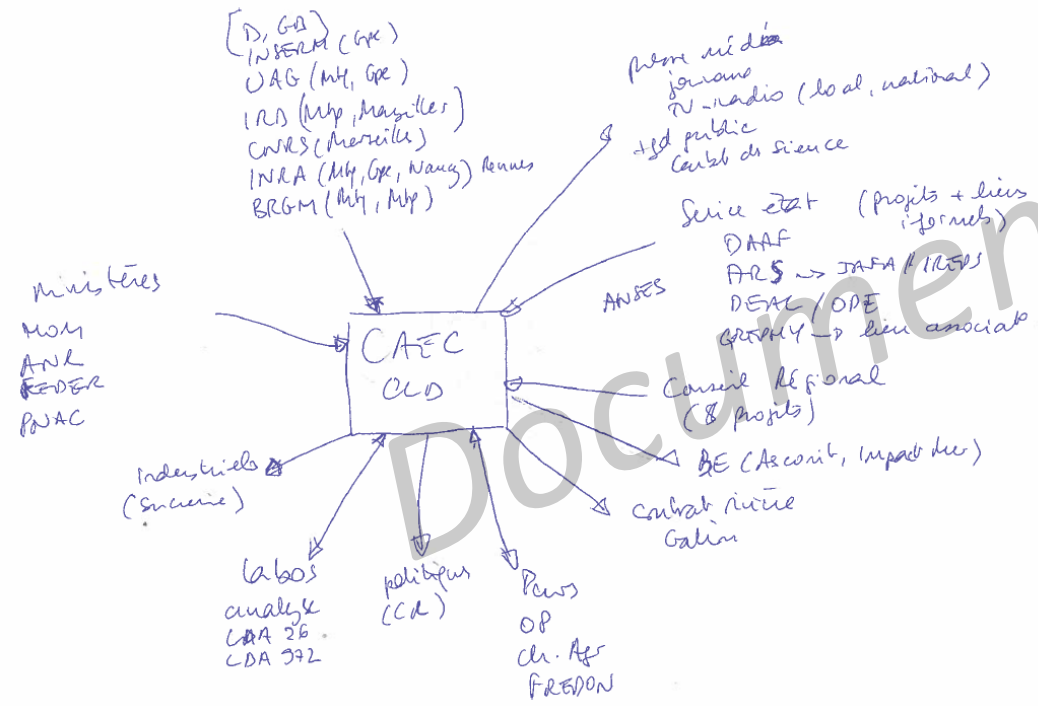 [D, GB)
INSERM (Gpe)
UAG (Mtq, Gpe)
IRD (Mtp, Marseilles)
CNRS (Marseille)
INRA (Mtq, Gpe, Nancy) Rennes
BRGM (Mtq, Mtp)
presse média
journaux
TV-radio (local, national)
+ gd public
science
Service etat (projets + liens
informels)
DAAF
ARS -> IREPS
DEAL / ODE
GREPHY -> lien associat
ANSES
Ministères
MOM
ANR
FEDER
PNAC
CAEC
CLD
Conseil Régional
(8 projets)
BE (Asconit, Impact Mer)
contrat rivière
Galion
industriels
(Sucrerie)
labos
analyse
LDA 26
LDA 972
politiques
(CR)
OP
Ch. Agr
FREDON
Documen